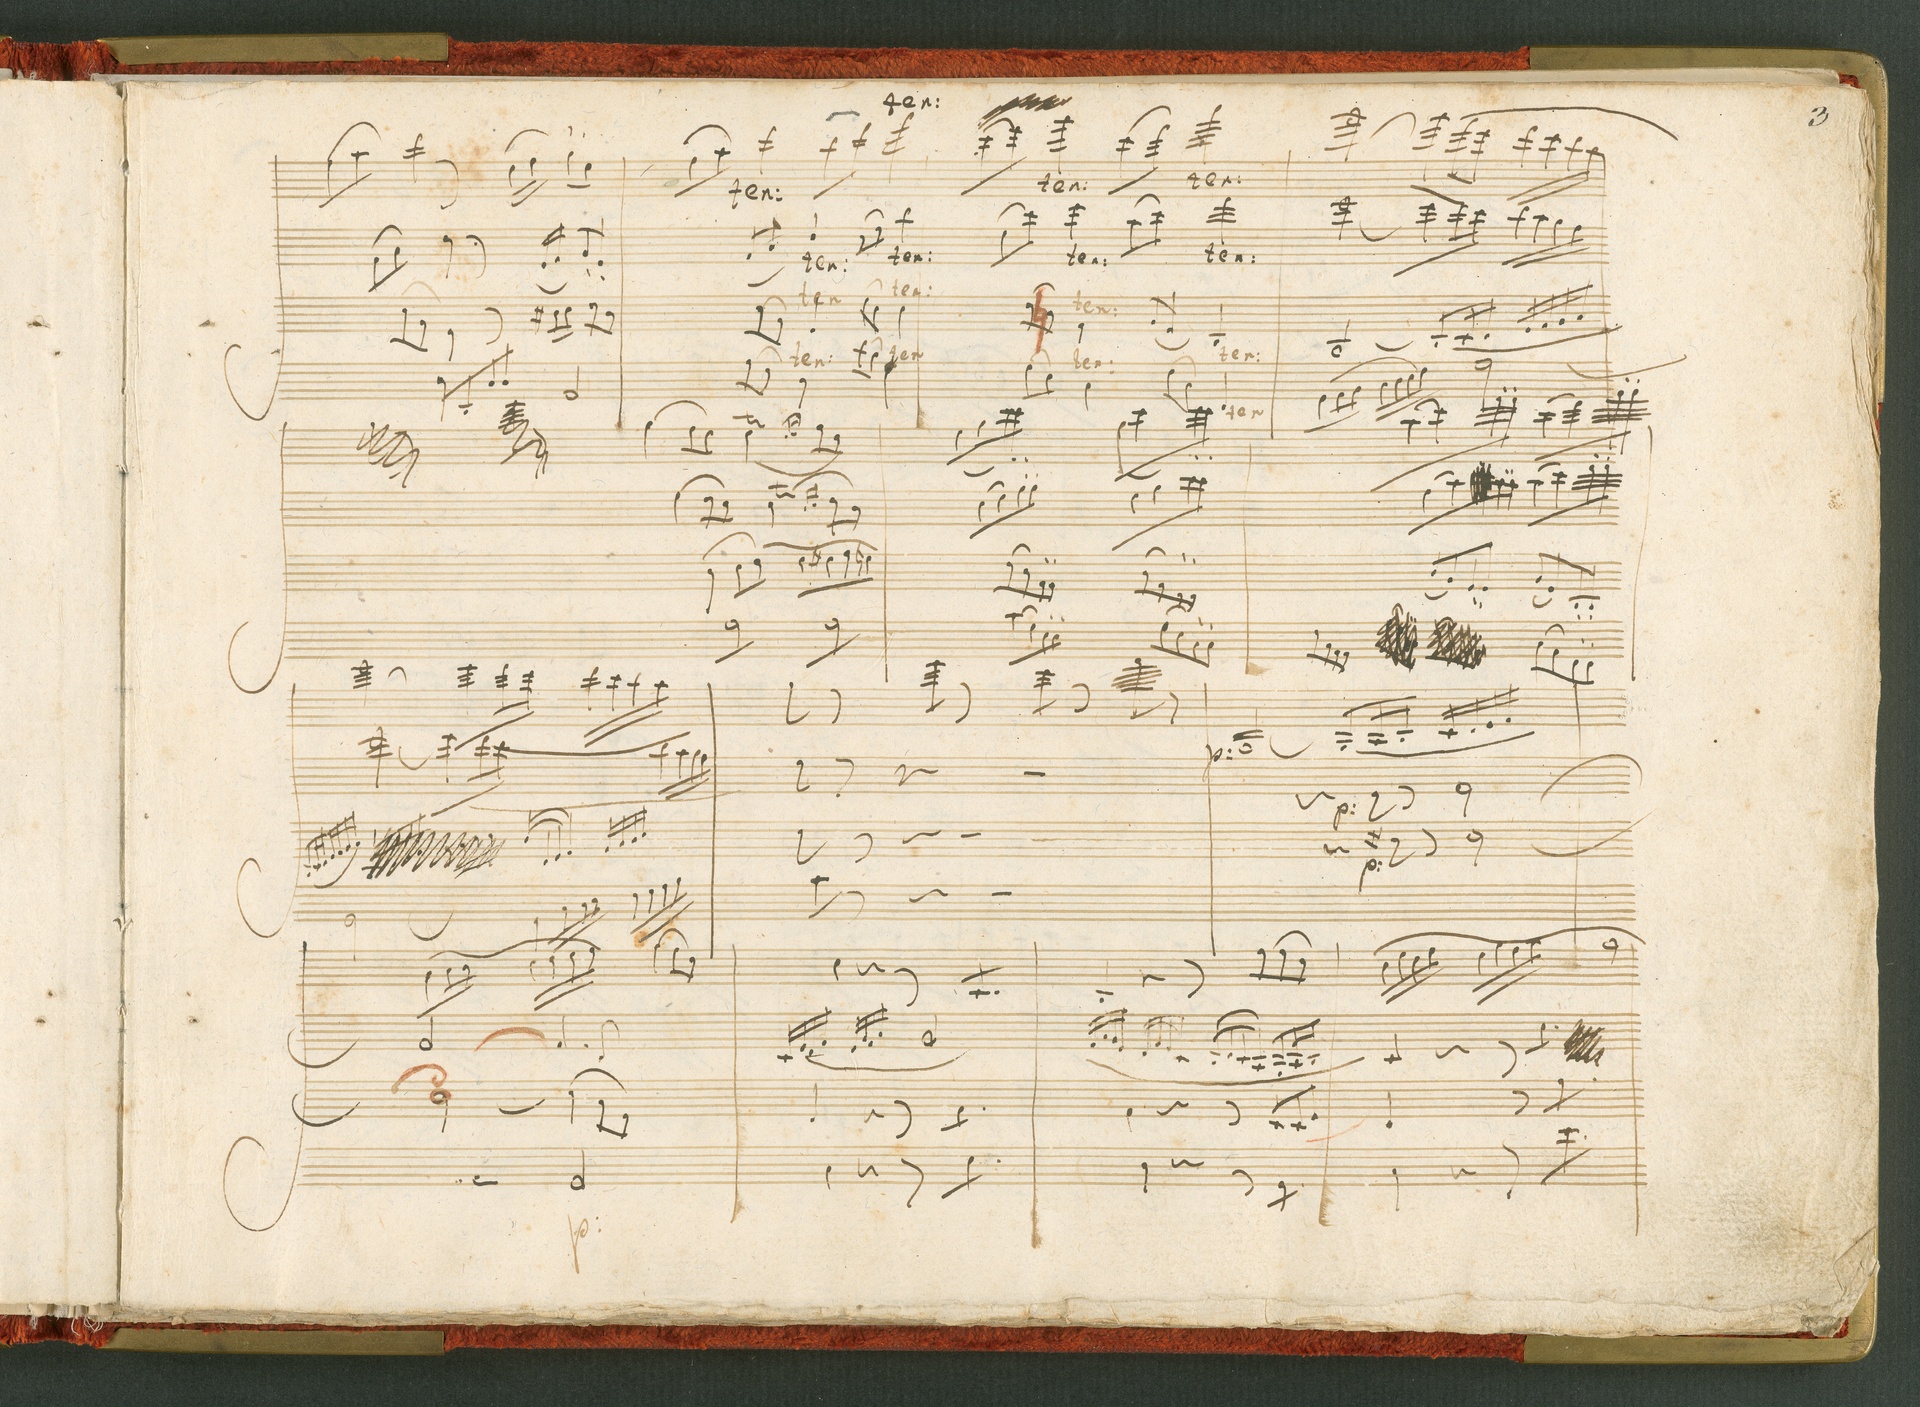 3
ten:
ten: ten: ten:
ten: ten: ten: ten:
ten ten: ten:
ten: ten ten: ten:
ten
p:
p:
p:
p: